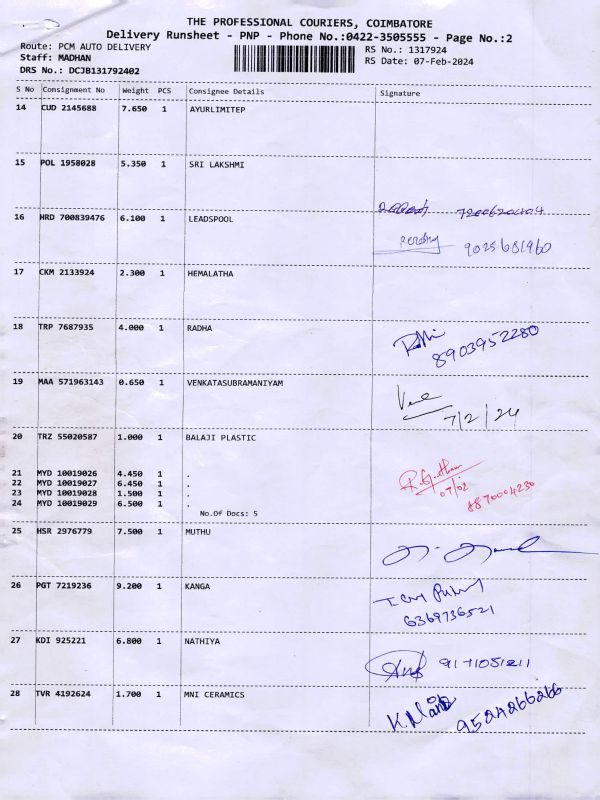 THE PROFESSIONAL COURIERS, COIMBATORE
Delivery Runsheet - PNP - Phone No.:0422-3505555 - Page No.:2
Route: PCM AUTO DELIVERY RS No.: 1317924
Staff: MADHAN RS Date: 07-Feb-2024
DRS No.: DCJB131792402
S No Consignment No Weight PCS Consignee Details Signature
14 CUD 2145688 7.650 1 AYURLIMITEP
15 POL 1958028 5.350 1 SRI LAKSHMI
7200620404
16 HRD 700839476 6.100 1 LEADSPOOL
9025681960
17 CKM 2133924 2.300 1 HEMALATHA
18 TRP 7687935 4.000 1 RADHA
8903952280
19 MAA 571963143 0.650 1 VENKATASUBRAMANIYAM
7/2/24
20 TRZ 55020587 1.000 1 BALAJI PLASTIC
21 MYD 10019026 4.450 1 .
22 MYD 10019027 6.450 1 .
07/02
23 MYD 10019028 1.500 1 .
24 MYD 10019029 6.500 1 . 8870004230
No.Of Docs: 5
25 HSR 2976779 7.500 1 MUTHU
26 PGT 7219236 9.200 1 KANGA
6369736521
27 KDI 925221 6.800 1 NATHIYA
9171051211
28 TVR 4192624 1.700 1 MNI CERAMICS
9524266266